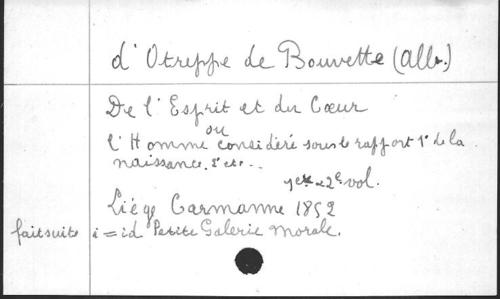 d'Otreppe de Bouvette (Alb.)
De l'Esprit et du Cœur
ou
l'Homme considéré sous le rapport 1° de la
naissance. 2° etc..
1er et 2e vol.
Liége Carmanne 1852
fait suite à = id Petite Galerie morale.